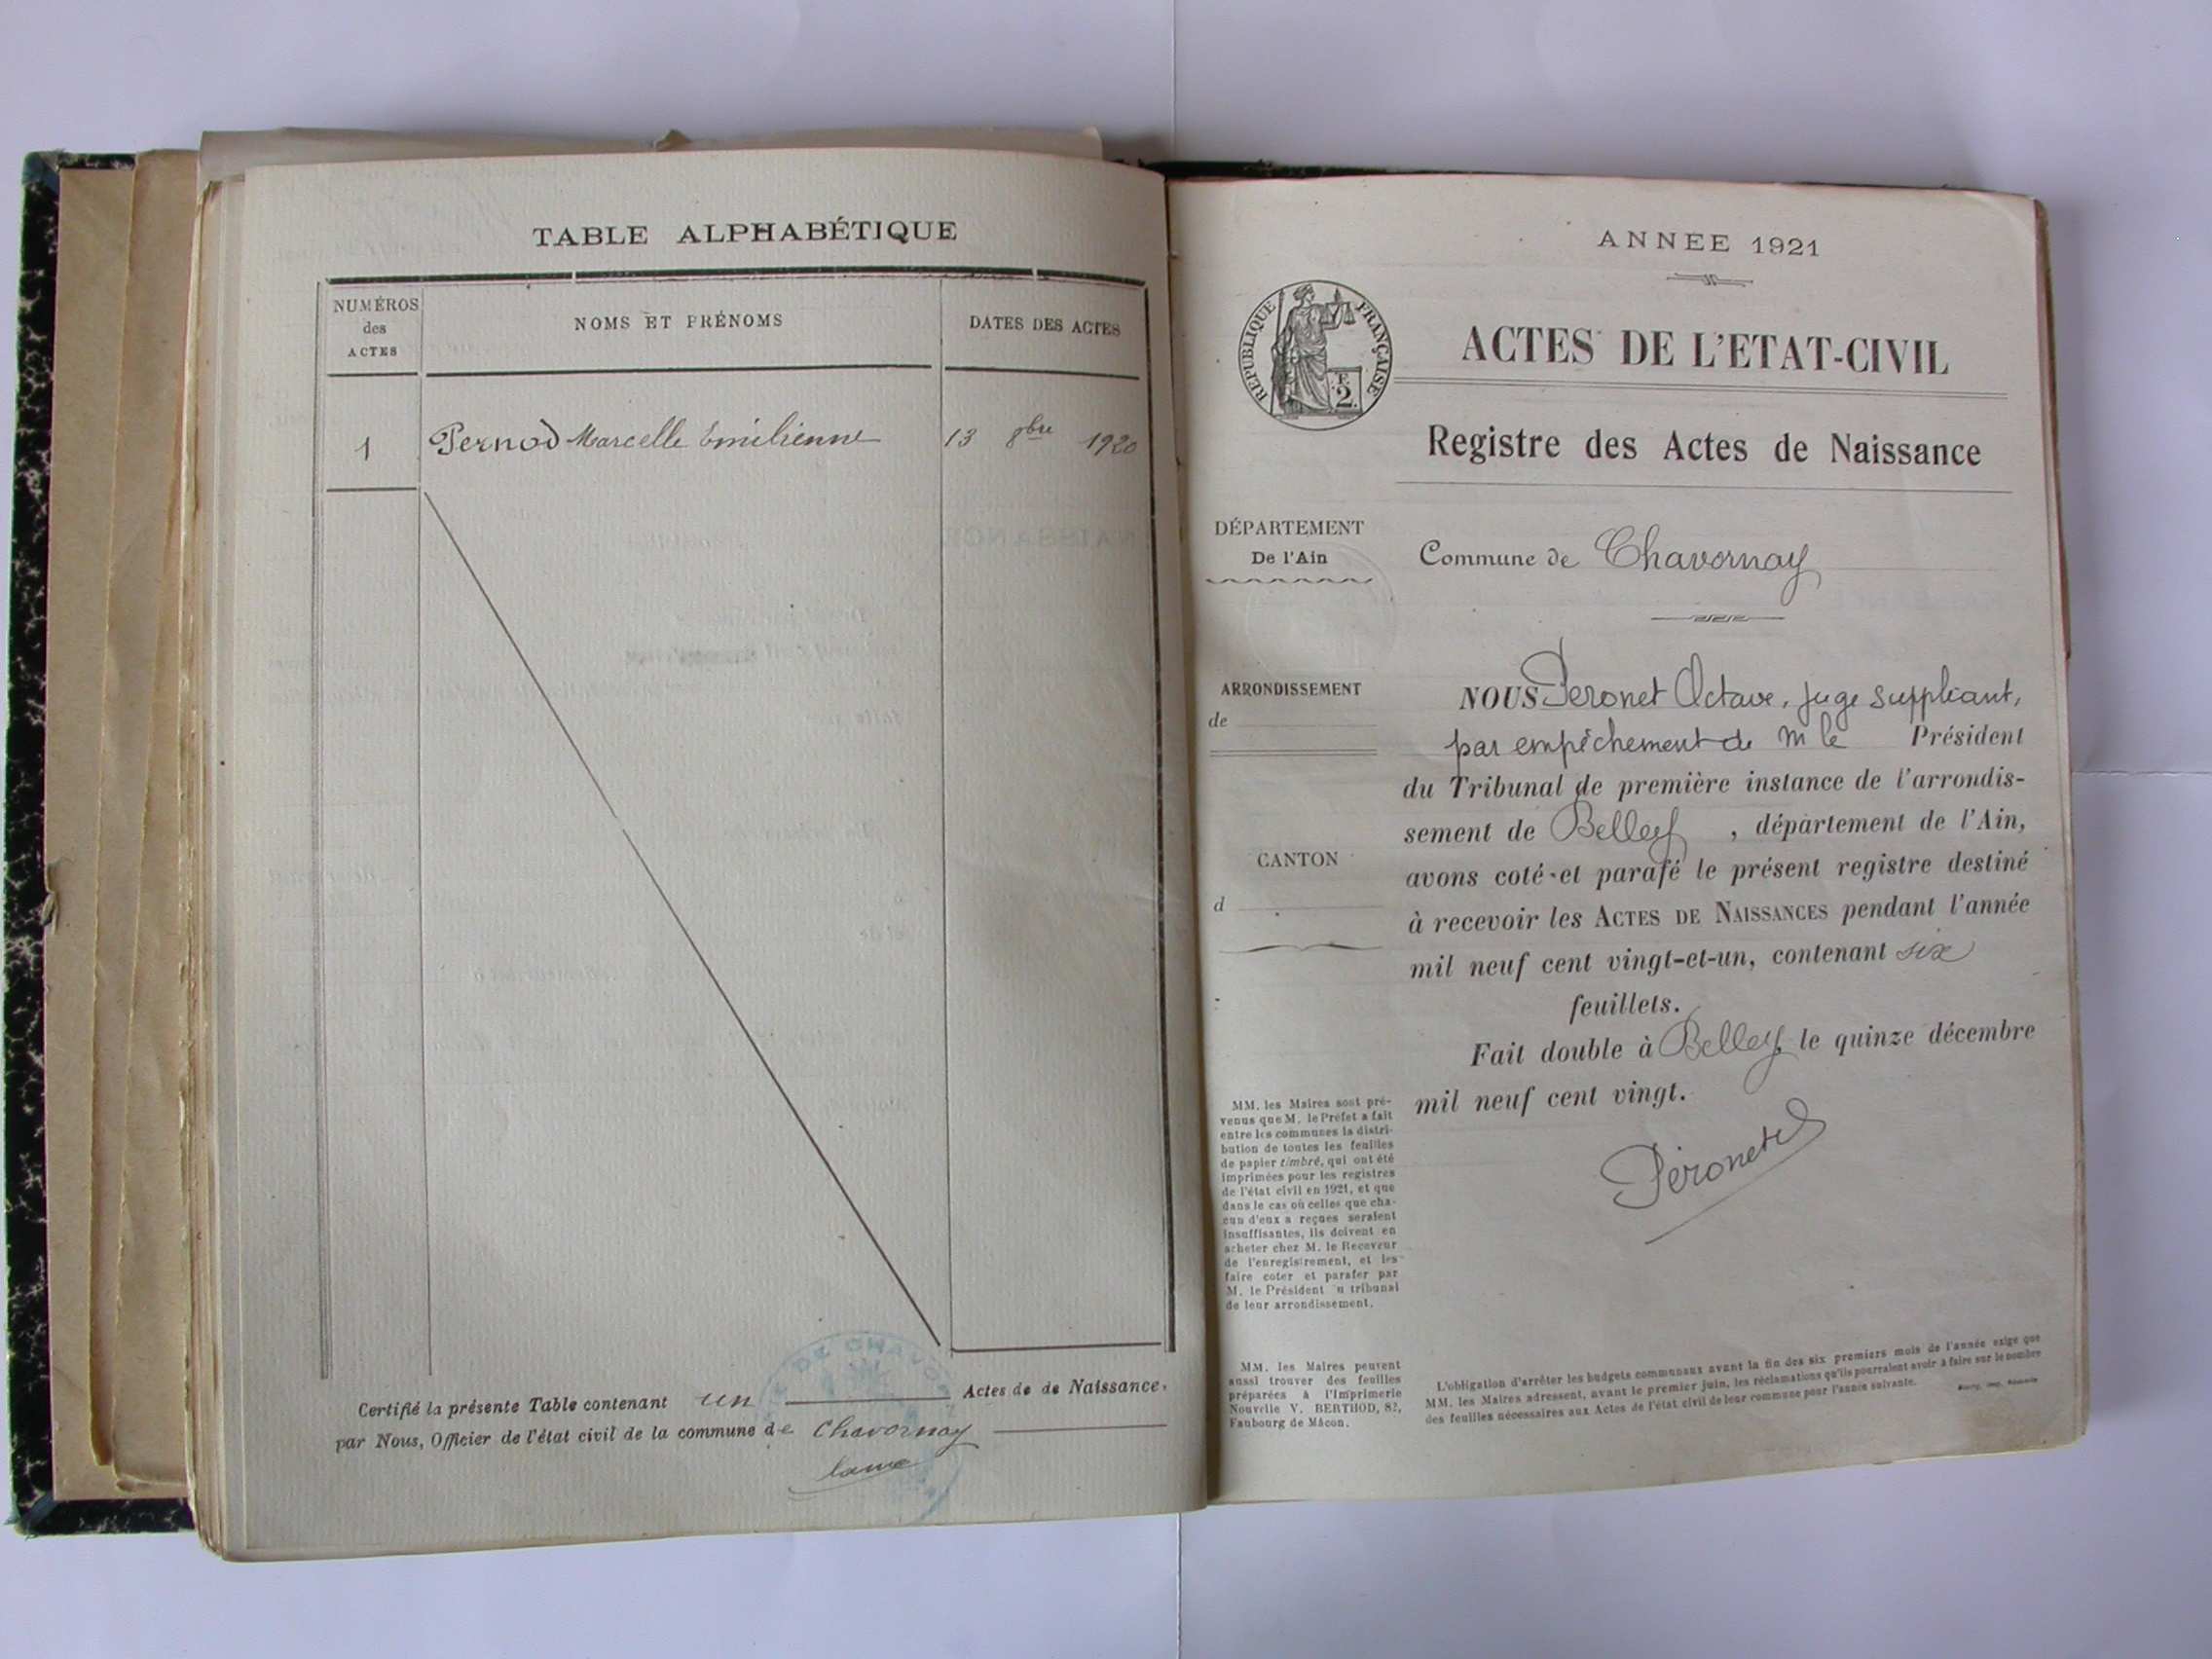 TABLE ALPHABÉTIQUE
NUMÉROS
des
ACTES
NOMS ET PRÉNOMS
DATES DES ACTES
1
Pernod Marcelle Emilienne
13 8bre 1920
Certifié la présente Table contenant un Actes de de Naissance,
par Nous, Officier de l'état civil de la commune de Chavornay
DE CHAVO
ANNEE 1921
RÉPUBLIQUE FRANÇAISE
F.
2
ACTES DE L'ETAT-CIVIL
Registre des Actes de Naissance
DÉPARTEMENT
De l'Ain
Commune de Chavornay
ARRONDISSEMENT
de
CANTON
d
NOUS Peronet Octave, juge suppléant,
par empêchement de M le Président
du Tribunal de première instance de l'arrondis-
sement de Belley , département de l'Ain,
avons coté et parafé le présent registre destiné
à recevoir les ACTES DE NAISSANCES pendant l'année
mil neuf cent vingt-et-un, contenant six
feuillets.
Fait double à Belley, le quinze décembre
mil neuf cent vingt.
Péronet
MM. les Maires sont pré-
venus que M. le Préfet a fait
entre les communes la distri-
bution de toutes les feuilles
de papier timbré, qui ont été
imprimées pour les registres
de l'état civil en 1921, et que
dans le cas où celles que cha-
cun d'eux a reçues seraient
insuffisantes, ils doivent en
acheter chez M. le Receveur
de l'enregistrement, et les
faire coter et parafer par
M. le Président u tribunal
de leur arrondissement.
MM. les Maires peuvent
aussi trouver des feuilles
préparées à l'Imprimerie
Nouvelle V. BERTHOD, 82,
Faubourg de Mâcon.
L'obligation d'arrêter les budgets communaux avant la fin des six premiers mois de l'année exige que
MM. les Maires adressent, avant le premier juin, les réclamations qu'ils pourraient avoir à faire sur le nombre
des feuilles nécessaires aux Actes de l'état civil de leur commune pour l'année suivante.